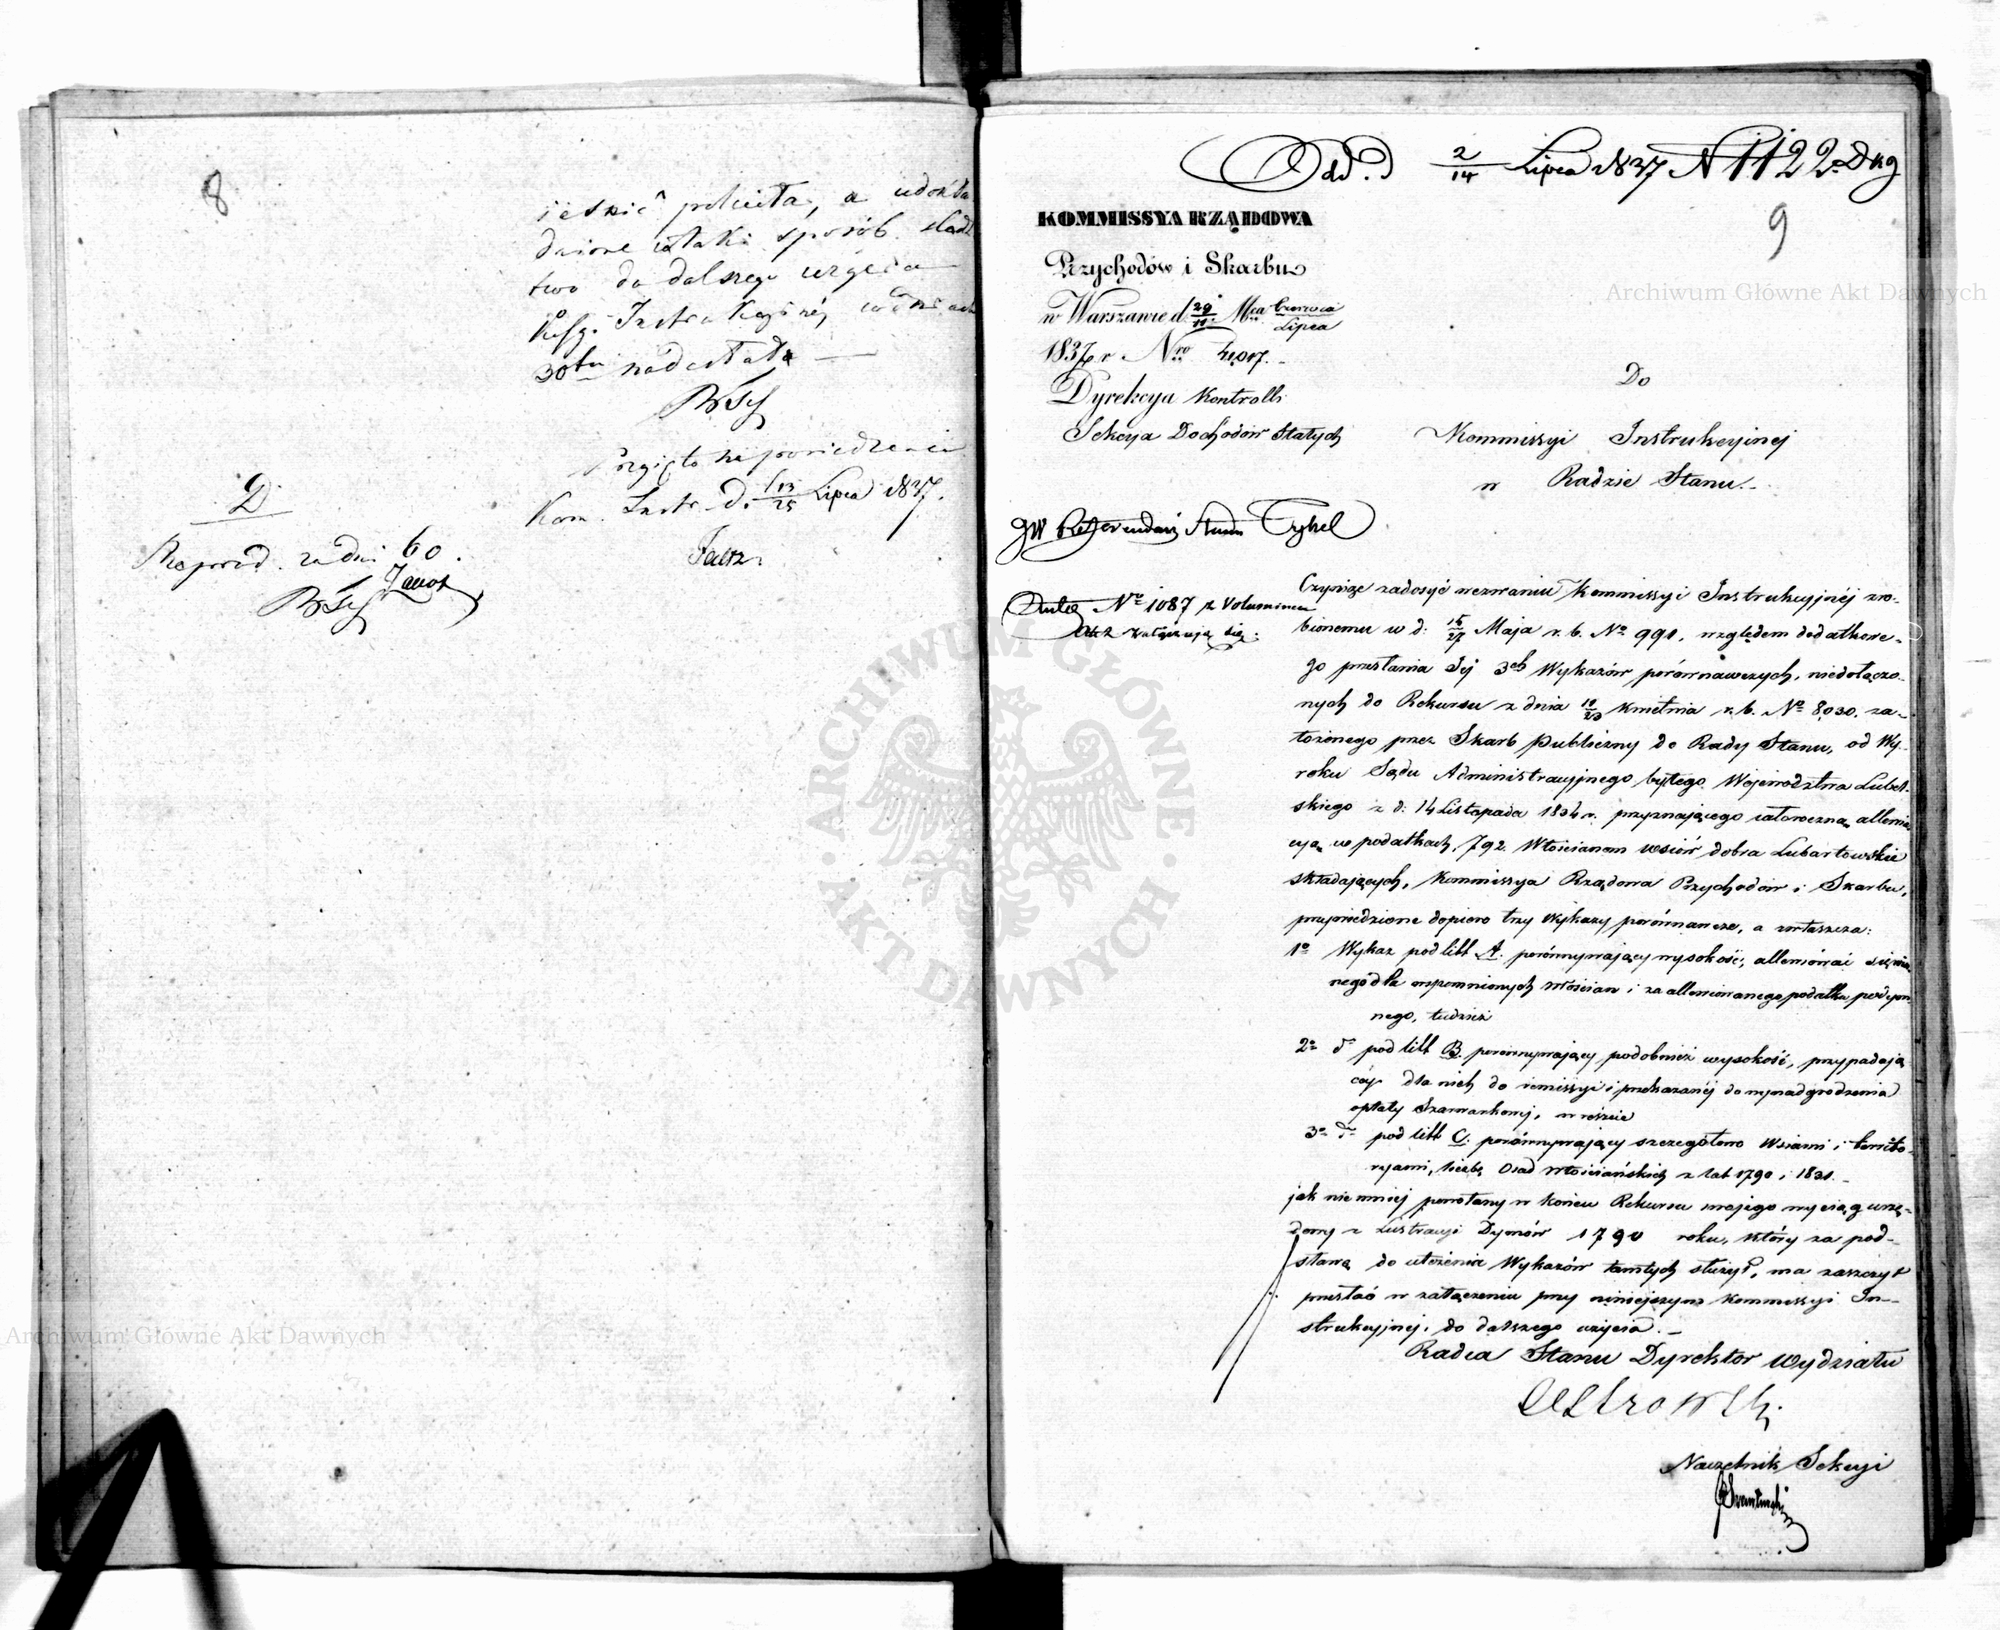 8
jeszcze poleciła, a
w taki sposób
do dalszego
30tu nadesłała
Przyjęto na posiedzeniu
Kom. Instr. D. 13/25 Lipca 1837.
D
za Dni 60.
Odd. D 2/14 Lipca 1837 N 1122. Dkg
9
KOMMISSYA RZĄDOWA
Przychodów i Skarbu
w Warszawie d. 29/11 Mca Czerwca/Lipca
1837 r. Nro
Dyrekcya Kontrolli
Sekcya Dochodów Stałych
Do
Kommissyi Instrukcyjnej
w Radzie Stanu.
JW Referendarz Stanu
No 1087 z Voluminem
Akt załączują się.
Czyniąc zadosyć wezwaniu Kommissyi Instrukcyjnéj zro-
bionemu w d: 15/27 Maja r. b. No 991, względem dodatkowe-
go przesłania Jéj 3ch Wykazów porównawczych, niedołączo-
nych do Rekursu z dnia Kwietnia r. b. No 8,030. za-
łożonego przez Skarb Publiczny do Rady Stanu, od Wy-
roku Sądu Administracyjnego byłego Województwa Lubel-
skiego z d: 14 Listopada 1834 r. przyznającego całoroczną
w podatkach, 792. Włościanom wsiów dobra Lubartowskie
składających, Kommissya Rządowa Przychodów i Skarbu,
dopiero trzy Wykazy porównawcze, a zwłaszcza:
1o Wykaz pod litt A. porównywający wysokość,
dla wspomnionych Włościan i podatku podym-
nego, tudzież
2o do pod litt B. porównywający podobnież wysokość, przypadają-
céj dla nich do remissyi i przekazanéj do wynadgrodzenia
opłaty Szarwarkowéj, wreszcie
3o do pod litt C. porównywający szczegółowo Wsiami i territo-
ryami, liczbę Osad Włościańskich z lat 1790 i 1831.
jak niemniéj powołany w końcu Rekursu mojego wyciąg urzę-
dowy z Lustracyi Dymów 1790 roku, który za pod-
stawę do ułożenia Wykazów tamtych służył, ma zaszczyt
przesłać w załączeniu przy niniejszym Kommissyi In-
strukcyjnéj, do dalszego użycia.
Radca Stanu Dyrektor Wydziału
Naczelnik Sekcyi
ARCHIWUM GŁÓWNE · AKT DAWNYCH ·
Archiwum Główne Akt Dawnych
Archiwum Główne Akt Dawnych